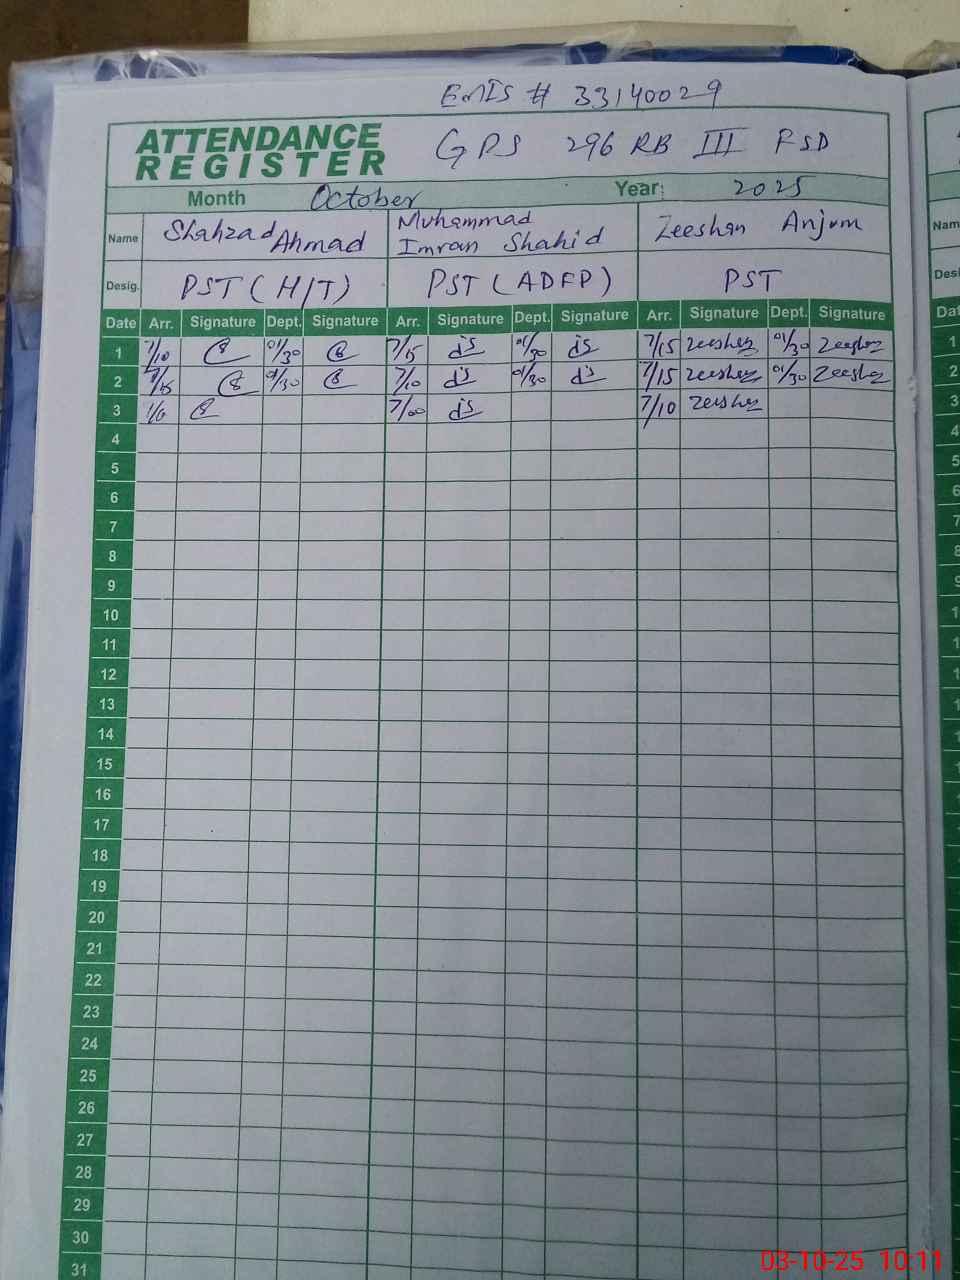 EMIS # 33140029
ATTENDANCE REGISTER GPS 296 RB III FSD
Month October Year: 2025
Name Shahzad Ahmad Muhammad Imran Shahid Zeeshan Anjum
Desig. PST (H/T) PST (ADFP) PST
Date Arr. Signature Dept. Signature Arr. Signature Dept. Signature Arr. Signature Dept. Signature
1 7/10 01/30 7/15 01/30 7/15 Zeeshan 01/30 Zeeshan
2 7/15 01/30 7/10 01/30 7/15 Zeeshan 01/30 Zeeshan
3 7/00 7/10 Zeeshan
4
5
6
7
8
9
10
11
12
13
14
15
16
17
18
19
20
21
22
23
24
25
26
27
28
29
30
31
03-10-25 10:11